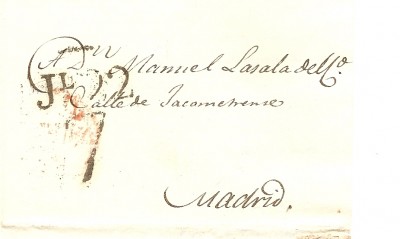 A Dn Manuel Lasala del Co.
Calle de Jacometrense
Madrid.